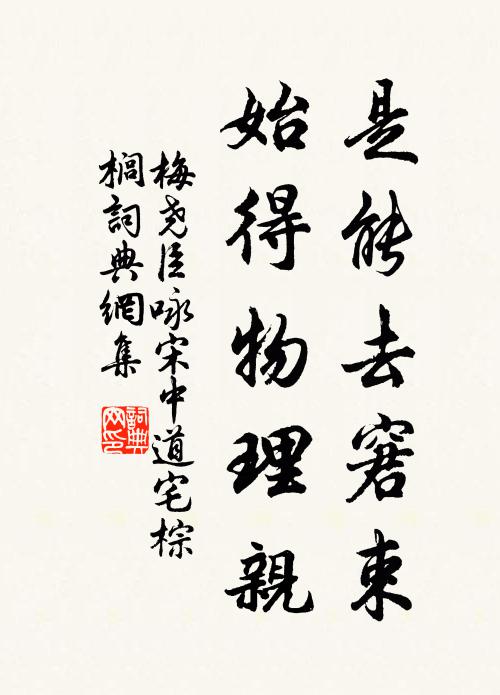 是能去窘束
始得物理親
梅堯臣咏宋中道宅棕
櫚詞典網集
詞典
网印